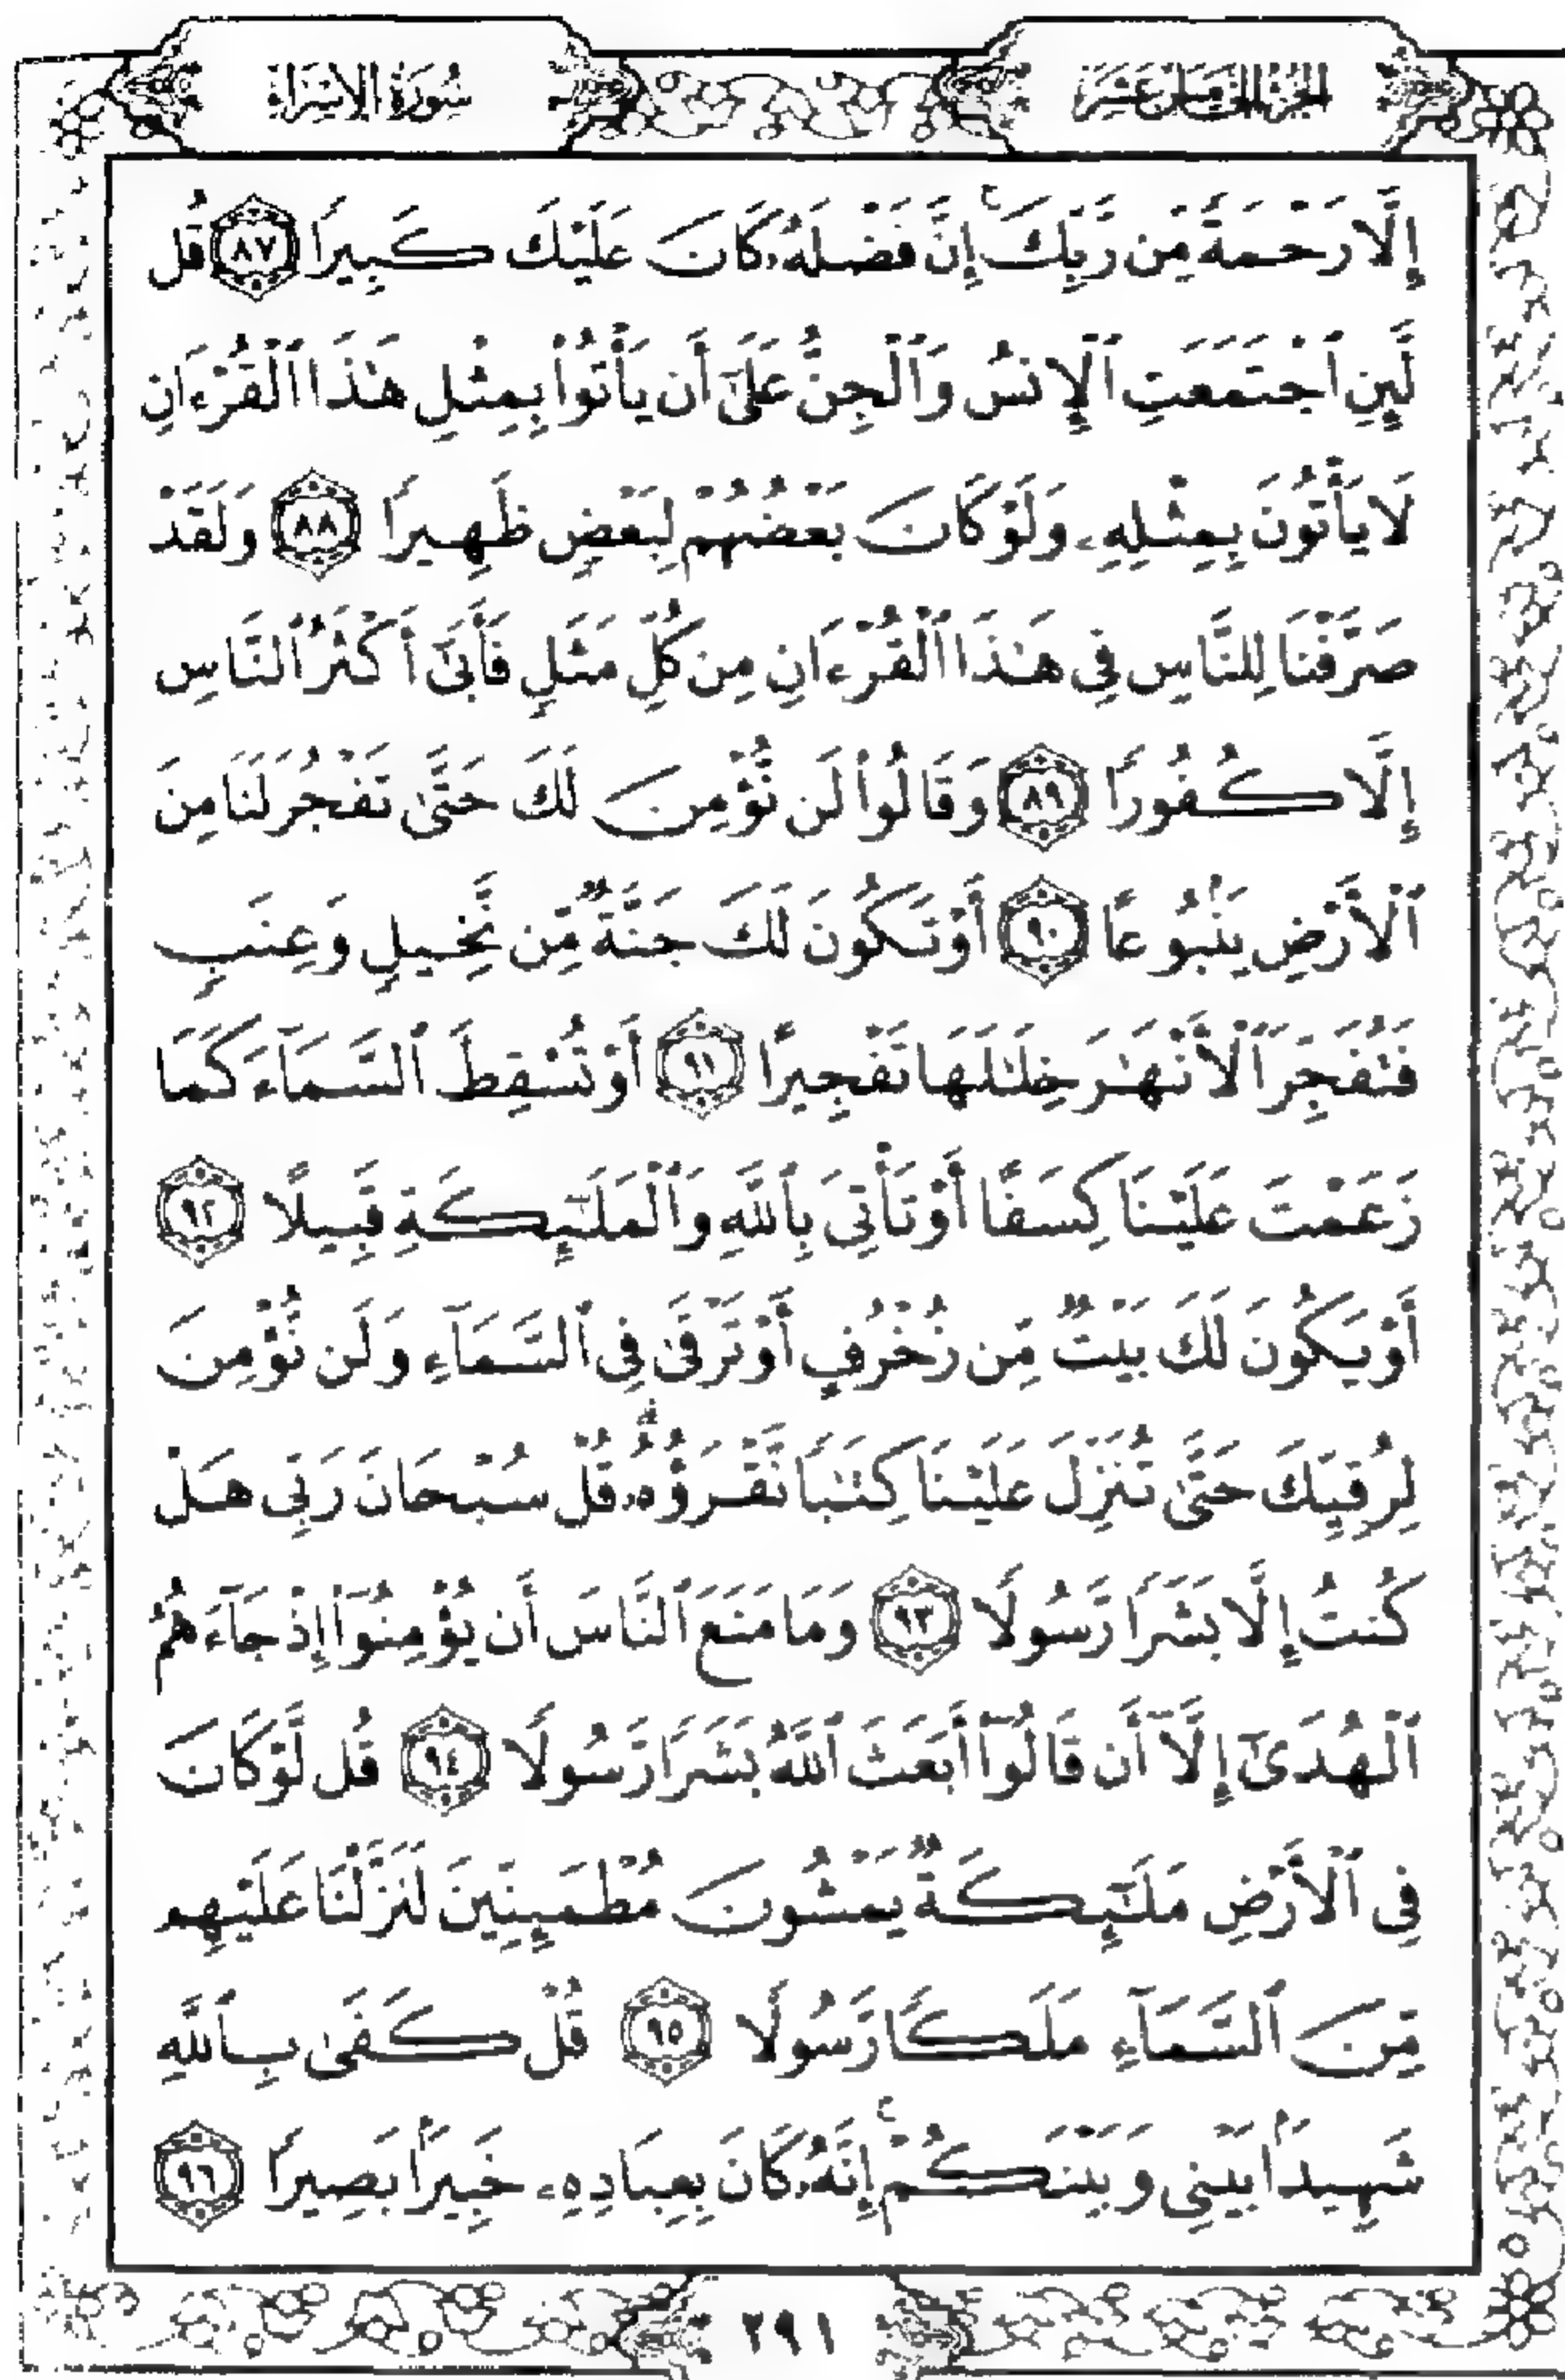 الجزء الخامس عشر
سورة الإسراء
إِلَّا رَحْمَةً مِّن رَّبِّكَ ۚ إِنَّ فَضْلَهُۥ كَانَ عَلَيْكَ كَبِيرًا ٨٧ قُل
لَّئِنِ ٱجْتَمَعَتِ ٱلْإِنسُ وَٱلْجِنُّ عَلَىٰٓ أَن يَأْتُوا۟ بِمِثْلِ هَٰذَا ٱلْقُرْءَانِ
لَا يَأْتُونَ بِمِثْلِهِۦ وَلَوْ كَانَ بَعْضُهُمْ لِبَعْضٍ ظَهِيرًا ٨٨ وَلَقَدْ
صَرَّفْنَا لِلنَّاسِ فِى هَٰذَا ٱلْقُرْءَانِ مِن كُلِّ مَثَلٍ فَأَبَىٰٓ أَكْثَرُ ٱلنَّاسِ
إِلَّا كُفُورًا ٨٩ وَقَالُوا۟ لَن نُّؤْمِنَ لَكَ حَتَّىٰ تَفْجُرَ لَنَا مِنَ
ٱلْأَرْضِ يَنۢبُوعًا ٩٠ أَوْ تَكُونَ لَكَ جَنَّةٌ مِّن نَّخِيلٍ وَعِنَبٍ
فَتُفَجِّرَ ٱلْأَنْهَٰرَ خِلَٰلَهَا تَفْجِيرًا ٩١ أَوْ تُسْقِطَ ٱلسَّمَآءَ كَمَا
زَعَمْتَ عَلَيْنَا كِسَفًا أَوْ تَأْتِىَ بِٱللَّهِ وَٱلْمَلَٰٓئِكَةِ قَبِيلًا ٩٢
أَوْ يَكُونَ لَكَ بَيْتٌ مِّن زُخْرُفٍ أَوْ تَرْقَىٰ فِى ٱلسَّمَآءِ وَلَن نُّؤْمِنَ
لِرُقِيِّكَ حَتَّىٰ تُنَزِّلَ عَلَيْنَا كِتَٰبًا نَّقْرَؤُهُۥ ۗ قُلْ سُبْحَانَ رَبِّى هَلْ
كُنتُ إِلَّا بَشَرًا رَّسُولًا ٩٣ وَمَا مَنَعَ ٱلنَّاسَ أَن يُؤْمِنُوٓا۟ إِذْ جَآءَهُمُ
ٱلْهُدَىٰٓ إِلَّآ أَن قَالُوٓا۟ أَبَعَثَ ٱللَّهُ بَشَرًا رَّسُولًا ٩٤ قُل لَّوْ كَانَ
فِى ٱلْأَرْضِ مَلَٰٓئِكَةٌ يَمْشُونَ مُطْمَئِنِّينَ لَنَزَّلْنَا عَلَيْهِم
مِّنَ ٱلسَّمَآءِ مَلَكًا رَّسُولًا ٩٥ قُلْ كَفَىٰ بِٱللَّهِ
شَهِيدًۢا بَيْنِى وَبَيْنَكُمْ ۚ إِنَّهُۥ كَانَ بِعِبَادِهِۦ خَبِيرًۢا بَصِيرًا ٩٦
٢٩١